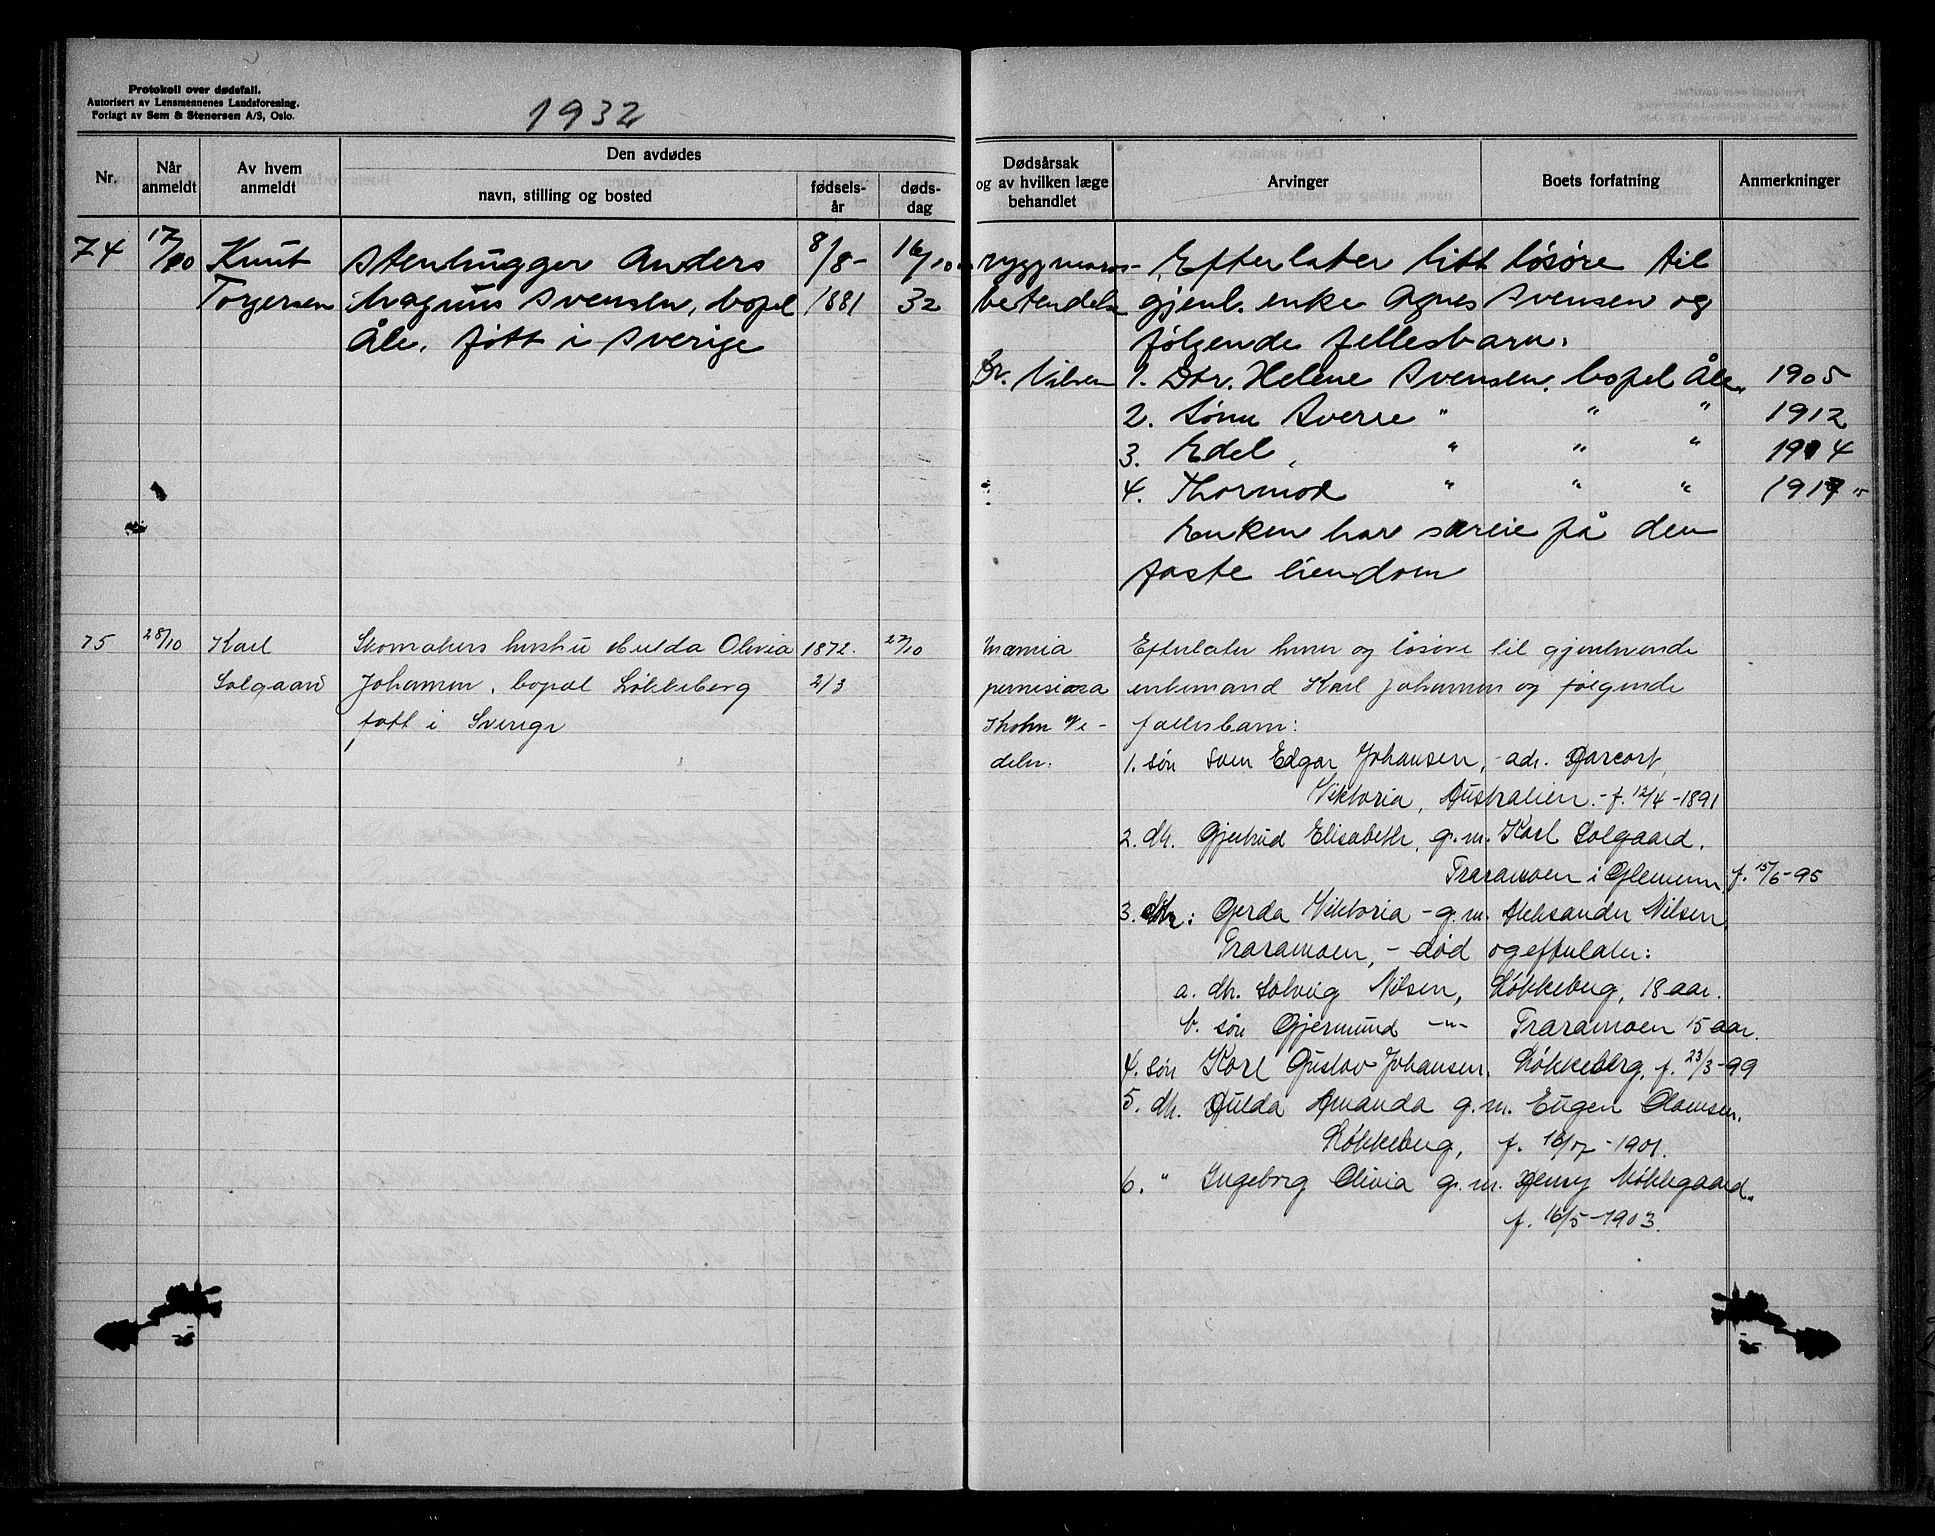 Protokoll over dødsfall.
Autorisert av Lensmennenes Landsforening.
Forlagt av Sem & Stenersen A/S, Oslo.
1932
Nr.
Når anmeldt
Av hvem anmeldt
Den avdødes
navn, stilling og bosted
fødsels-år
døds-dag
Dødsårsak og av hvilken læge behandlet
Arvinger
Boets forfatning
Anmerkninger
74 17/10 Knut Stenhugger Anders 8/8- 16/10 ryggmarvs- Efterlater litt løsøre til
Torgersen Magnus Svensen, bopel 1881 32 betendelse gjenl. enke Agnes Svensen og
Åle. født i Sverige følgende fellesbarn:
Dr. Nilsen 1. Dtr. Helene Svensen, bopel Åle. 1905
2. Sønn Sverre " " " 1912
3. Edel, " " " 1914
4. Thormod " " "
Enken har særeie på den
faste eiendom
75 28/10 Karl Skomakers hustru Hulda Olivia 1872. 27/10 Efterlater hus og løsøre til gjenlevende
Solgaard Johansen, bopel Løkkeberg 2/3 enkemand Karl Johansen og følgende
født i Sverige fællesbarn:
1. søn Sven Edgar Johansen, - adr.
Viktoria, Australien. - f. 12/4 - 1891
2. dtr. Gjertrud Elisabeth, g.m. Karl Solgaard.
Traramoen i Glemmen f. 15/6-95
3. dtr: Gerda Viktoria - g.m. Aleksander Nilsen,
Traramoen, - død og efterlater:
a. dtr. Solveig Nilsen, Løkkeberg, 18 aar.
b. søn Gjermund -"- Traramoen 15 aar.
4. søn Karl Gustav Johansen, Løkkeberg, f. 23/3-99
5. dtr. Hulda Amanda g.m. Eugen Clausen.
Løkkeberg, f. 16/7 - 1901.
6. " Ingeborg Olivia g.m. Henry Møkkegaard.
f. 16/5-1903.